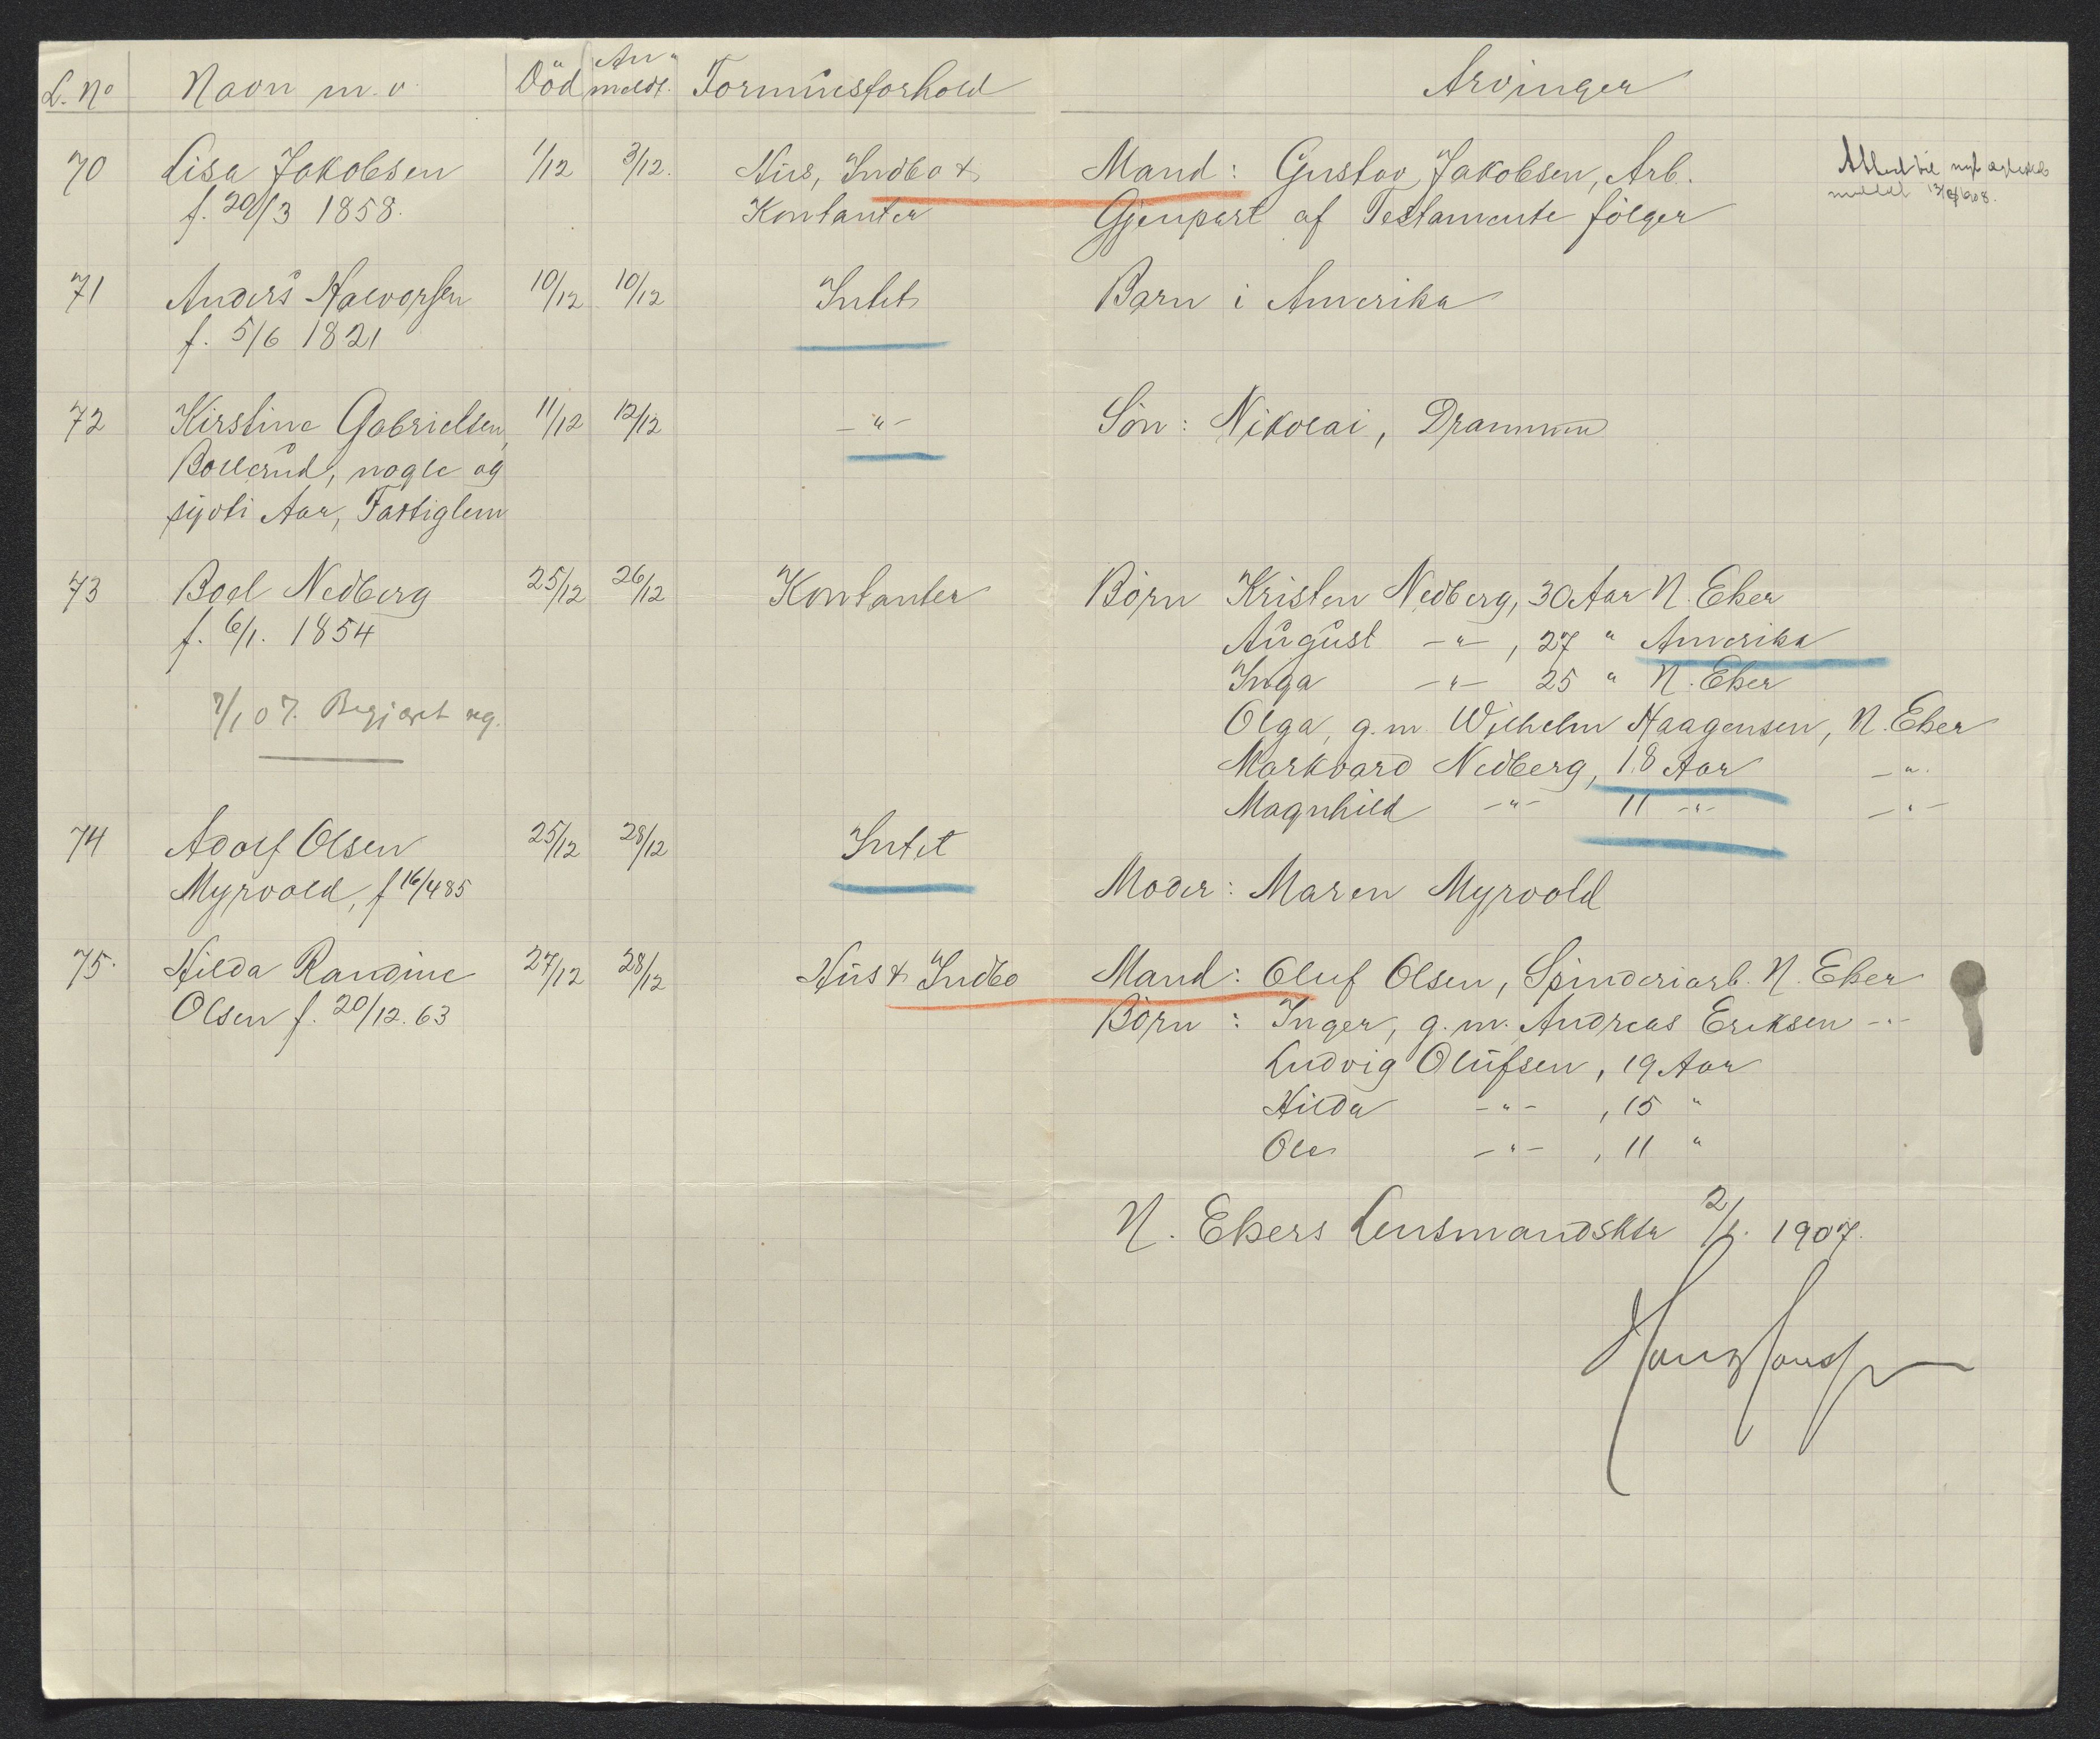 L. No Navn m. v. Död An- meldt. Formuesforhold Arvinger
70 Lisa Jakobsen 1/12 3/12. Hus, Indbo & Mand: Gustav Jakobsen, Arb.
f. 20/3 1858. Kontanter Gjenpart af Testamente fölger
71 Anders Halvorsen 10/12 10/12 Intet Barn i Amerika
f. 5/6 1821
72 Kirstine Gabrielsen, 11/12 12/12 -"- Sön: Nikolai, Drammen
Bollerud, nogle og
syvti Aar, Fattiglem
73 Boel Nedberg 25/12 26/12 Kontanter Börn Kristen Nedberg, 30 Aar N. Eker
f. 6/1. 1854 August -"-, 27 " Amerika
Inga -"- 25 " N. Eker
7/1 07. Begjæret reg. Olga, g.m. Wilhelm Haagensen, N. Eker
Markvard Nedberg, 18 Aar -"-
Magnhild -"- 11 -"- -"-
74 Adolf Olsen 25/12 28/12 Intet
Myrvold, f 16/4 85 Moder: Maren Myrvold
75. Hilda Randine 27/12 28/12 Hus & Indbo Mand: Oluf Olsen, Spinderiarb. N. Eker
Olsen f. 20/12. 63 Börn: Inger, g.m. Andreas Eriksen -"-
Ludvig Olufsen, 19 Aar
Hilda -"-, 15 "
Ole -"-, 11 "
N. Ekers Lensmandsktr 2/1. 1907.